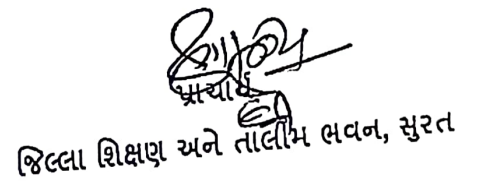 પ્રાચાર્ય
જિલ્લા શિક્ષણ અને તાલીમ ભવન, સુરત